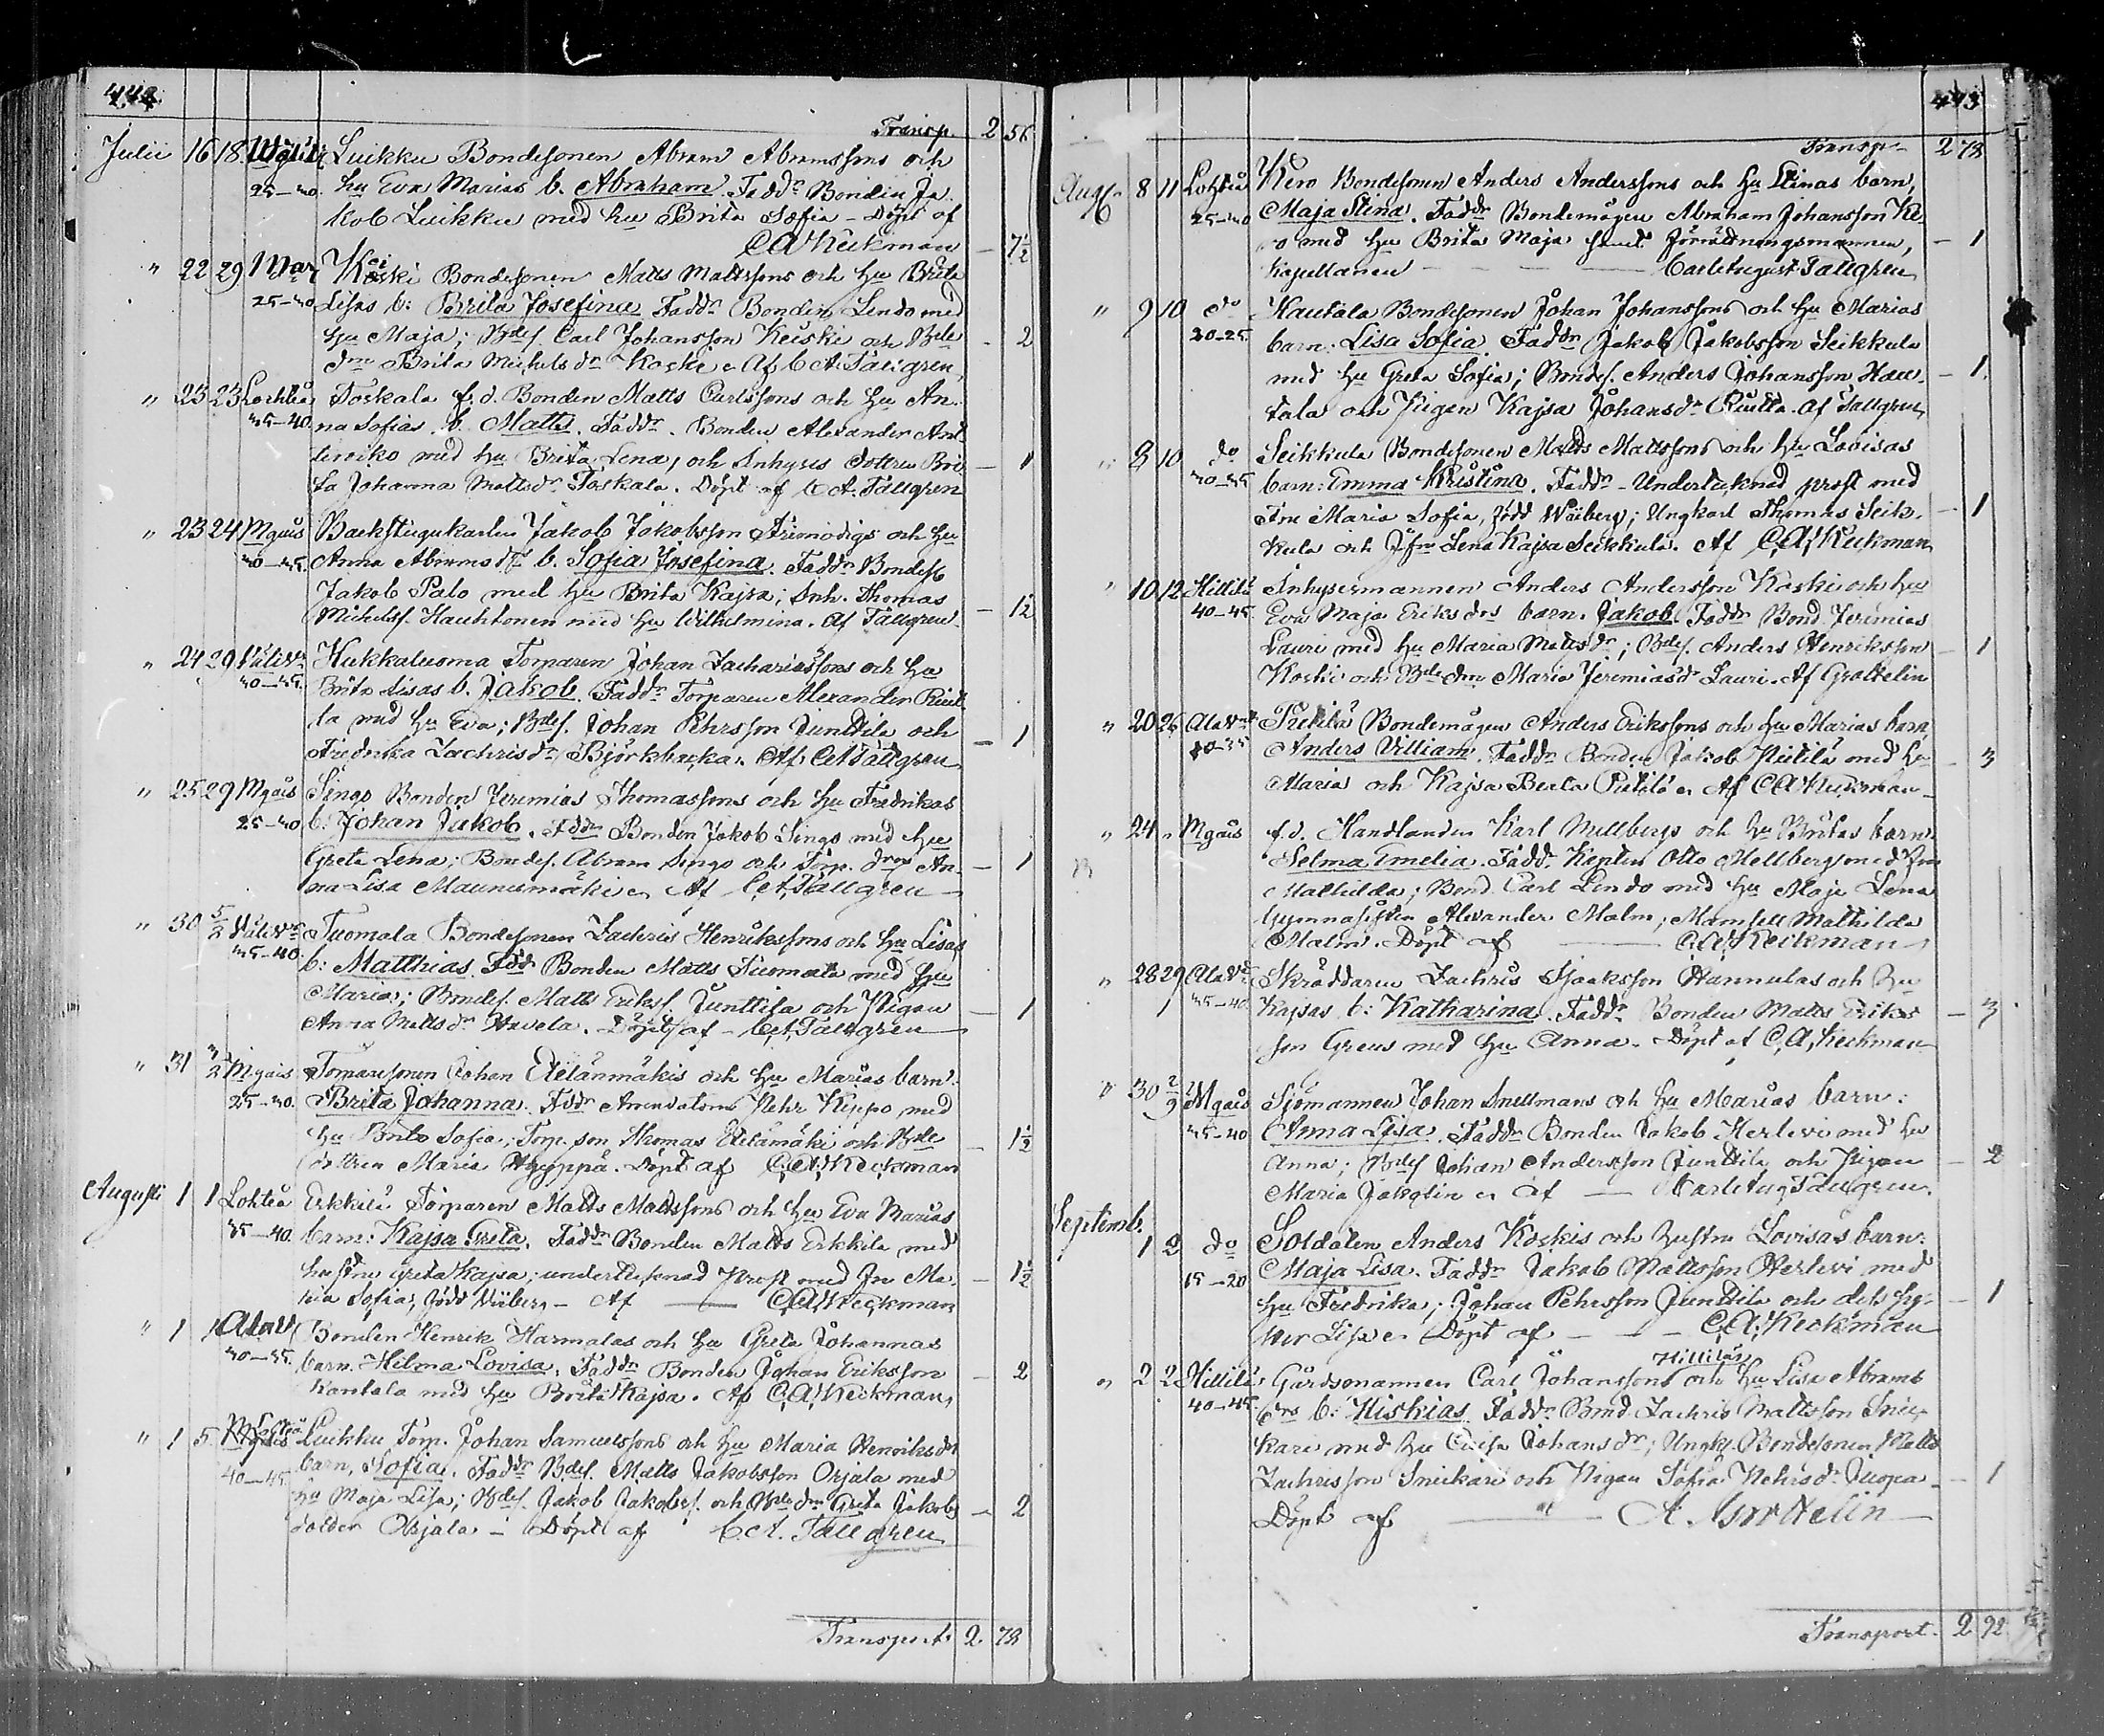 Transp. 2 56
Julii 16 18 Luikku Bondesonen Abram Abramssons och
25–30. hu Eva Marias b. Abraham. Faddr Bonden Ja
kob Luikku med hu Brita Sofia – Döpt af
C A Keckman – 7½
" 22 29 Mar Koski Bondesonen Matts Mattssons och hu Brita
25–30 Lisas b: Brita Josefina Faddr Bonden Lindo med
hu Maja; Bdes. Carl Johansson Keiski och Bde – 2
dm Brita Michelsdr Koski. af C A Tallgren,
" 23 23 Lochteå Toskala f.d. Bonden Matts Carlssons och hu An
35–40. na Sofias b. Matts. Faddr. Bonden Alexander Ant
med hu Brita Lena, och Inhyses dottren Bri – 1
ta Johanna Mattsdr Toskala. Döpt af C A. Tallgren
" 23 24 Mgås Backstugukarlen Jakob Jakobsson Frimodigs och hu
40–45. Anna Abramsdrs b. Sofia Josefina. Faddr Bondes
Jakob Palo med hu Brita Kajsa; Inh. Thomas
Michelss. Hauhtonen med hu Wilhelmina. Af Tallgren – 1½
" 24 29 Hukkaluoma Torparen Johan Zachariassons och hu
40–45. Brita Lisas b. Jakob. Faddr Torparen Alexander
ta med hu Eva; Bdes. Johan Pehrsson Junttila och
Fredrika Zachrisdr Björkbacka. Af C A Tallgren – 1
" 25 29 Mgås Lings Bonden Jeremias Thomassons och hu Fredrikas
25–30 b: Johan Jakob. Faddr Bonden Jakob Lings med hu
Greta Lena; Bondes. Abram Lings och Torp. An – 1
na Lisa Maunumäki. Af C A Tallgren
" 30 5/8 Tuomala Bondesonen Zachris Henrikssons och hu Lisas
35–40. b: Matthias. Fadd Bonden Matts Tuomala med hu
Maria; Bondes. Matts Erikss. Junttila och Pigan – 1
Anna Mattsdr Havela. Döpt af – C A Tallgren
" 31 Mgås Torparesonen Johan Etelänmäkis och hu Marias barn:
25–30. Brita Johanna. Faddr Arrendatorn Pehr Kippo med
hu Brita Sofia; Torp. son Thomas Etelämäki och Bde – 1½
dottren Maria Hyyppä. Döpt af C. A. Keckman
Augusti 1 1 Lohteå Erkkilä Torparen Matts Mattssons och hu Eva Marias
35–40. barn: Kajsa Greta. Faddr Bonden Matts Erkkila med
hustru Greta Kajsa; undertecknad Prost med Fru Ma – 1½
ria Sofia, född Wiiberg – Af C. A. Keckman
" 1 Bonden Henrik Harmalas och hu Greta Johannas
30–35. barn. Hilma Lovisa. Faddr Bonden Johan Eriksson – 2
Kantala med hu Brita Kajsa. Af C. A. Keckman,
" 1 5 Luikku Torp. Johan Samuelssons och hu Maria Henriksdrs
40–45. barn, Sofia. Faddr Bdes. Matts Jakobsson Orjala med
hu Maja Lisa; Bdes. Jakob Jakobss. och Bde dm Greta Jakobs – 2
dotter Orjala – Döpt af C. A. Tallgren
Transport. 2 78
443
Transp. 2 78
Aug. 8 11 Lohteå Kero Bondesonen Anders Anderssons och hu Stinas barn,
25–30 Maja Stina. Faddr Bondemågen Abraham Johansson Ke
ro med hu Brita Maja samt förrättningsmannen, – 1
Kapellanen Carl August Tallgren
" 9 10 do Hautala Bondesonen Johan Johanssons och hu Marias
20–25. barn: Lisa Sofia. Faddr Jakob Jakobsson Seikkula
med hu Greta Sofia; Bondes. Anders Johansson Hau – 1.
tala och Pigan Kajsa Johansdr. Af Tallgren
" 8 10 do Seikkula Bondesonen Matts Mattssons och hu Lovisas
barn: Emma Kristina. Faddr – Undertecknad prost med
Fru Maria Sofia, född Wiiberg; Ungkarl Thomas Seik – 1
kula och Lena Kajsa Seikkula. Af C. A. Keckman
" 10 12 Hillilä Inhysesmannen Anders Andersson Koski och hu
40–45 Eva Maja Eriksdrs barn. Jakob Faddr Bond Jeremias
Lauri med hu Maria Mattsdr; Bdes. Anders Henriksson – 1
Koski och Bde dm Maria Jeremiasdr Lauri. Af
" 20 25 Alav Pietilä Bondemågen Anders Erikssons och hu Marias barn,
30–35 Anders Villiam. Faddr Bonden Jakob Pietilä med hu – 3
Maria och Kajsa Beata Pietilä. Af C A Keckman
" 24 " Mgås f.d. Handlanden Karl Mellbergs och hu Britas barn.
Selma Emelia. Faddr Kapten Otto Mellberg med Fru
Mathilda; Bond. Carl Lindo med hu Maja Lena
Gymnasisten Alexander Malm; Mamsell Mathilda
Malm. Döpt af C. A. Keckman
" 28 29 Alav Skräddaren Zachris Isaksson Hannulas och hu
35–40. Kajsas b: Katharina. Faddr Bonden Matts Eriks – 3
son Greus med hu Anna. Döpt af C. A. Keckman
" 30 2/9 Mgås Sjömannen Johan Snellmans och hu Marias barn:
35–40 Anna Lisa. Faddr Bonden Jakob Herlevi med hu
Anna; Bdes Johan Andersson Junttila och Pigan – 2
Maria Jakolin. af Carl Aug Tallgren.
Septemb.
1 2 do Soldaten Anders Koskis och hustru Lovisas barn:
15–20 Maja Lisa. Faddr Jakob Mattsson Herlevi med
hu Fredrika; Johan Pehrsson Junttila och dess – 1
Lisa. Döpt af – C. A. Keckman
Hilliläs
" 2 2 Hillilä Gårdsmannen Carl Johanssons och hu Lisa Abrams
40–45. drs b: Hiskias. Faddr Bond. Zachris Mattsson Snic
kari med hu Johansdr; Ungk. Bondesonen Matts
Zachrisson Snickari och Pigan Sofia Pehrsdr Juopa – 1
Döpt af
Transport. 2 92